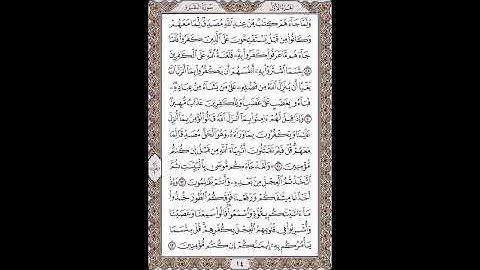 الجزء الأول
سورة البقرة
وَلَمَّا جَآءَهُمْ كِتَٰبٌ مِّنْ عِندِ ٱللَّهِ مُصَدِّقٌ لِّمَا مَعَهُمْ
وَكَانُوا۟ مِن قَبْلُ يَسْتَفْتِحُونَ عَلَى ٱلَّذِينَ كَفَرُوا۟ فَلَمَّا
جَآءَهُم مَّا عَرَفُوا۟ كَفَرُوا۟ بِهِۦ فَلَعْنَةُ ٱللَّهِ عَلَى ٱلْكَٰفِرِينَ
٨٩ بِئْسَمَا ٱشْتَرَوْا۟ بِهِۦٓ أَنفُسَهُمْ أَن يَكْفُرُوا۟ بِمَآ أَنزَلَ ٱللَّهُ
بَغْيًا أَن يُنَزِّلَ ٱللَّهُ مِن فَضْلِهِۦ عَلَىٰ مَن يَشَآءُ مِنْ عِبَادِهِۦ
فَبَآءُو بِغَضَبٍ عَلَىٰ غَضَبٍ وَلِلْكَٰفِرِينَ عَذَابٌ مُّهِينٌ
٩٠ وَإِذَا قِيلَ لَهُمْ ءَامِنُوا۟ بِمَآ أَنزَلَ ٱللَّهُ قَالُوا۟ نُؤْمِنُ بِمَآ أُنزِلَ
عَلَيْنَا وَيَكْفُرُونَ بِمَا وَرَآءَهُۥ وَهُوَ ٱلْحَقُّ مُصَدِّقًا لِّمَا
مَعَهُمْ قُلْ فَلِمَ تَقْتُلُونَ أَنۢبِيَآءَ ٱللَّهِ مِن قَبْلُ إِن كُنتُم
مُّؤْمِنِينَ ٩١ وَلَقَدْ جَآءَكُم مُّوسَىٰ بِٱلْبَيِّنَٰتِ ثُمَّ
ٱتَّخَذْتُمُ ٱلْعِجْلَ مِنۢ بَعْدِهِۦ وَأَنتُمْ ظَٰلِمُونَ ٩٢ وَإِذْ
أَخَذْنَا مِيثَٰقَكُمْ وَرَفَعْنَا فَوْقَكُمُ ٱلطُّورَ خُذُوا۟
مَآ ءَاتَيْنَٰكُم بِقُوَّةٍ وَٱسْمَعُوا۟ قَالُوا۟ سَمِعْنَا وَعَصَيْنَا
وَأُشْرِبُوا۟ فِى قُلُوبِهِمُ ٱلْعِجْلَ بِكُفْرِهِمْ قُلْ بِئْسَمَا
يَأْمُرُكُم بِهِۦٓ إِيمَٰنُكُمْ إِن كُنتُم مُّؤْمِنِينَ ٩٣
١٤